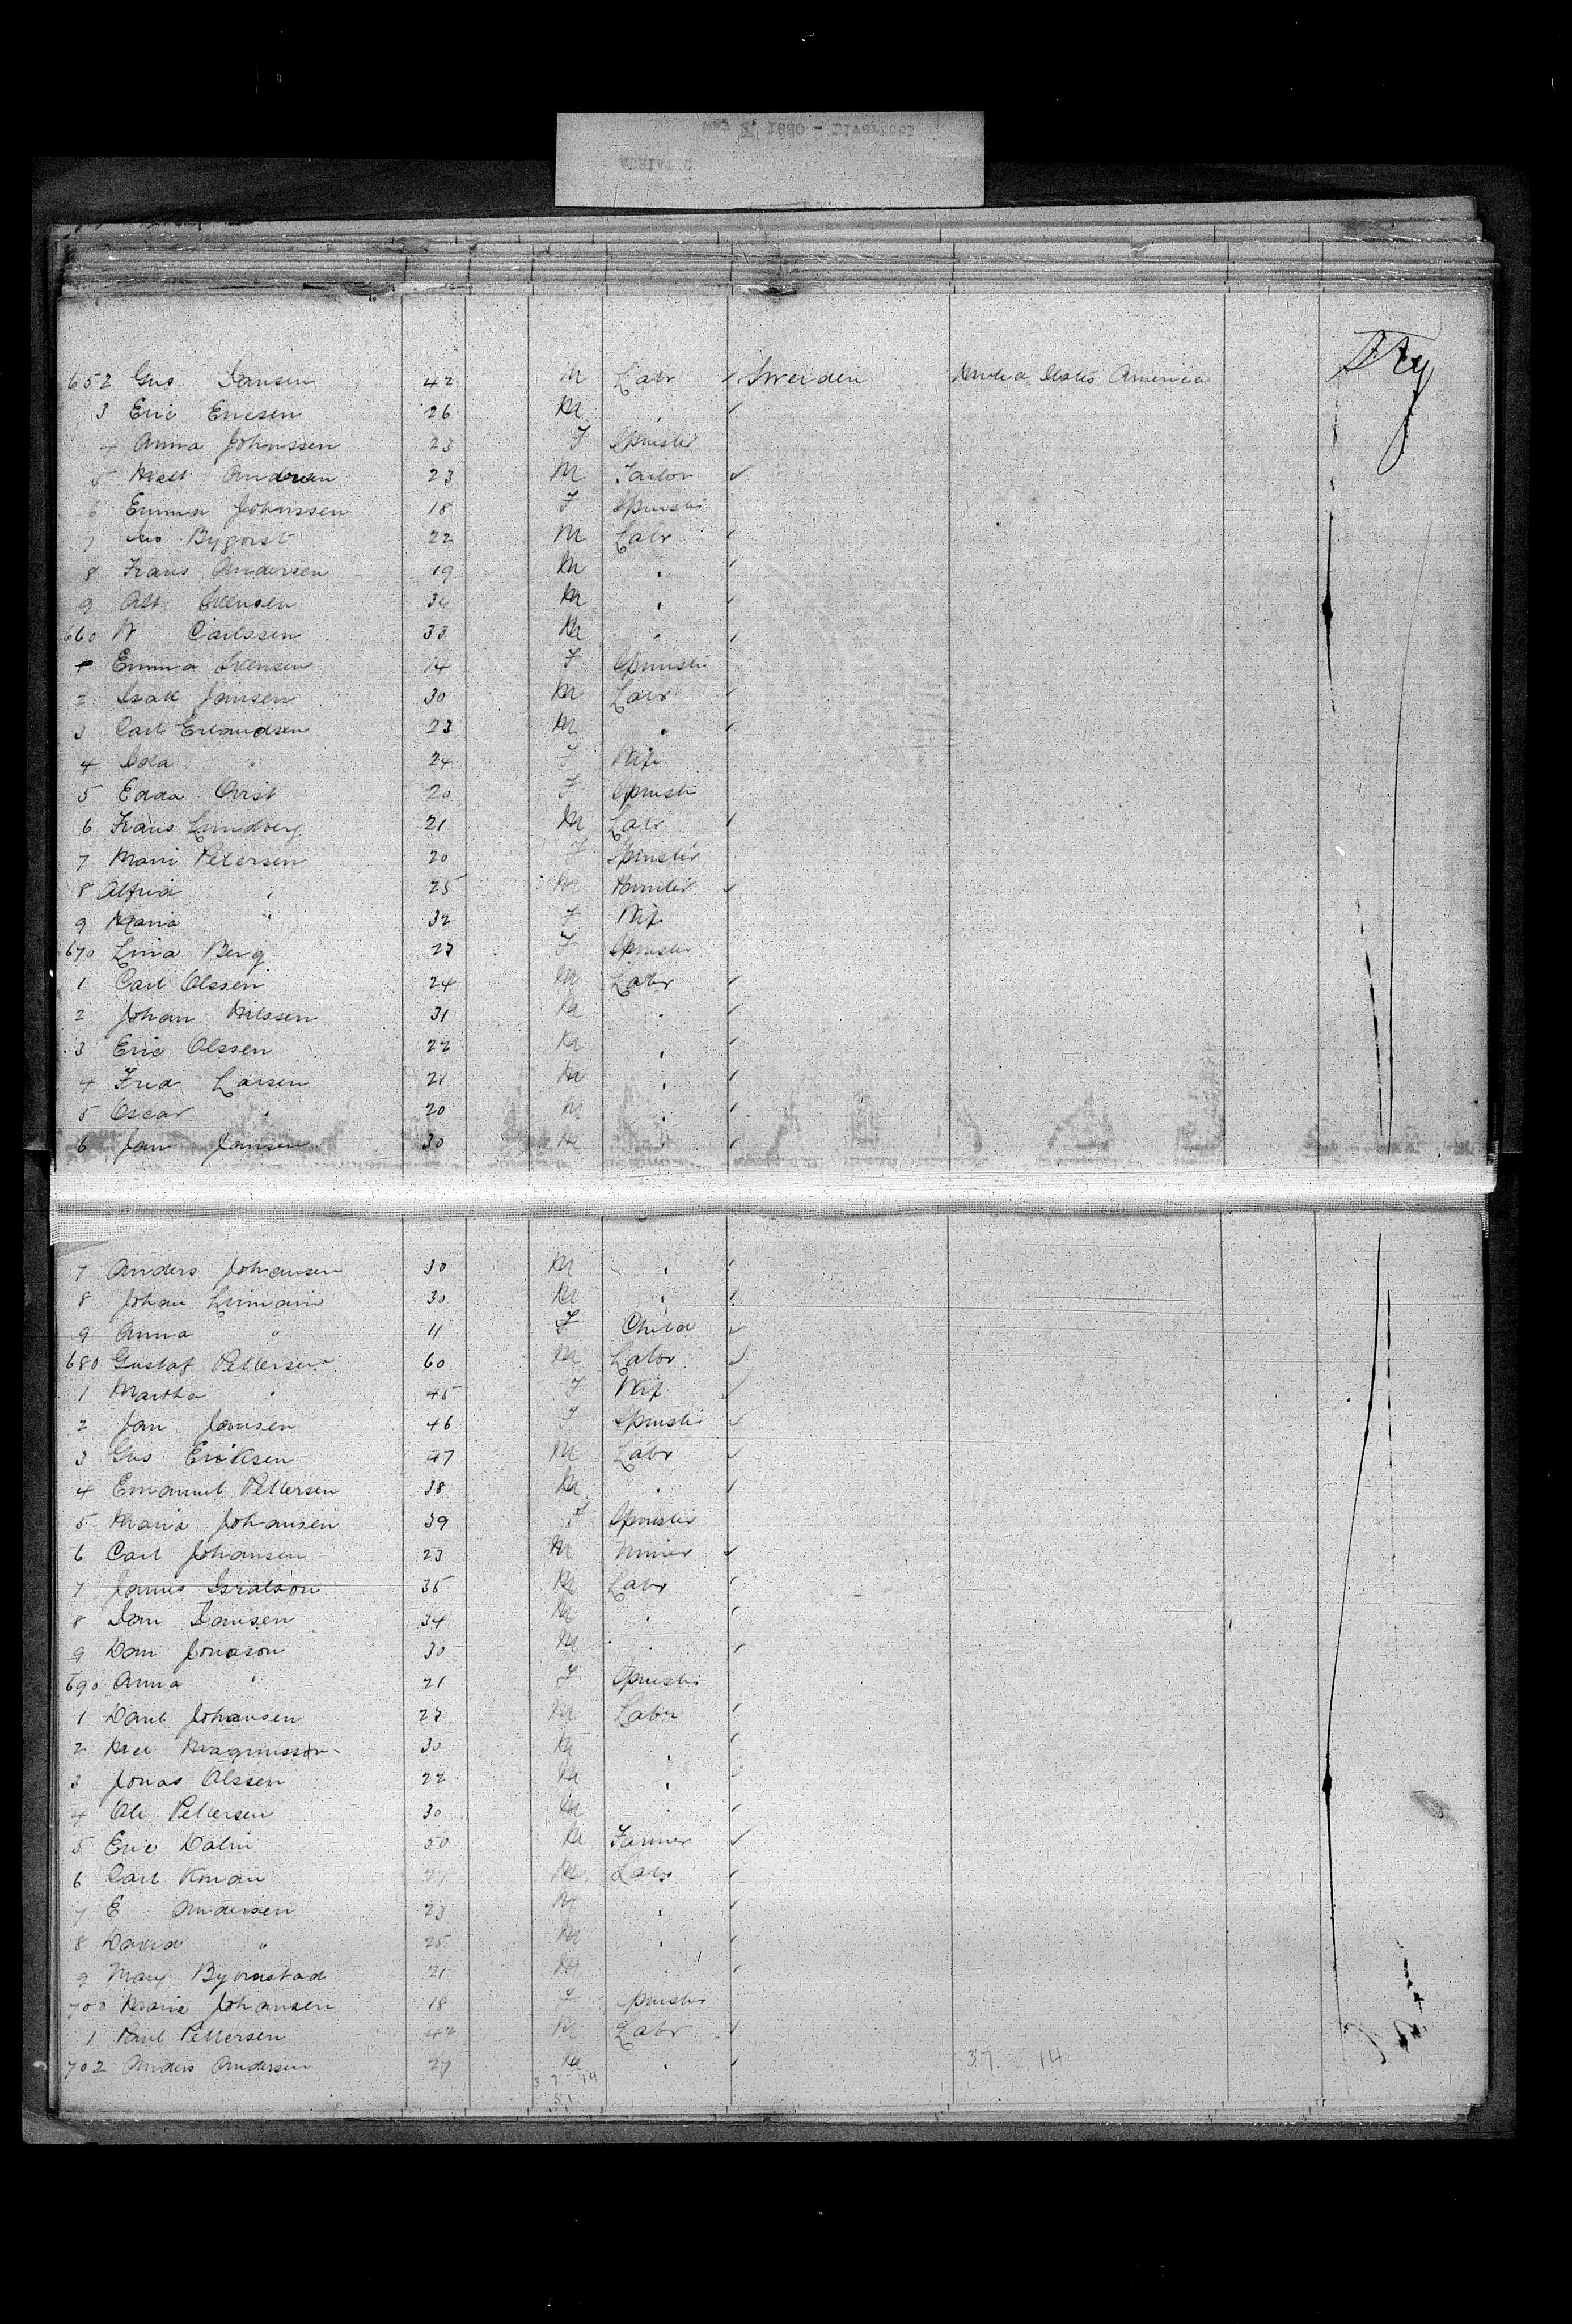 652 Gus Jansen 42 M Labr ✓ Sweiden United States America
3 Eric Ericsen 26 M " ✓
4 Anna Johnssen 23 F Spinster
5 Andersen 23 M Tailor ✓
6 Emma Johnssen 18 F Spinster
7 22 M Labr ✓
8 Frans Andersen 19 M " ✓
9 Svensen 34 M " ✓
660 N Carlssen 33 M " ✓
1 Emma Svensen 14 F Spinster
2 Isak Jansen 30 M Labr ✓
3 Carl Erlandsen 23 M " ✓
4 Ida " 24 F Wife
5 Edda Qvist 20 F Spinster
6 Frans Lundberg 21 M Labr ✓
7 Mari Petersen 20 F Spinster
8 Alfred " 25 M ✓
9 Maria " 32 F Wife
670 Lina Berg 23 F Spinster
1 Carl Olssen 24 M Labr ✓
2 Johan Nilssen 31 M " ✓
3 Eric Olssen 22 M " ✓
4 Fred Larsen 21 M " ✓
5 Oscar " 20 M " ✓
6 Jan Jansen 30 M " ✓
7 Anders Johansen 30 M " ✓
8 Johan 30 M " ✓
9 Anna " 11 F Child ✓
680 Gustaf Pettersen 60 M Labr ✓
1 Martha " 45 F Wife ✓
2 Jan Jansen 46 F Spinster ✓
3 Gus Eriksen 47 M Labr ✓
4 Emanuel Pettersen 38 M " ✓
5 Maria Johansen 39 F Spinster
6 Carl Johansen 23 M Miner ✓
7 James Isralson 35 M Labr ✓
8 Jan Jansen 34 M " ✓
9 Dan Jonason 30 M " ✓
690 Anna " 21 F Spinster
1 Danl Johansen 23 M Labr ✓
2 Magnusson 30 M " ✓
3 Jonas Olssen 22 M " ✓
4 Ole Pettersen 30 M " ✓
5 Eric Dalin 50 M Farmer ✓
6 Carl 27 M Labr ✓
7 E Andersen 23 M " ✓
8 David " 25 M " ✓
9 Byornstad 21 M " ✓
700 Maria Johansen 18 F Spinster
1 Paul Pettersen 42 M Labr ✓
702 Anders Andersen 27 M " ✓
37 14
37 14
51